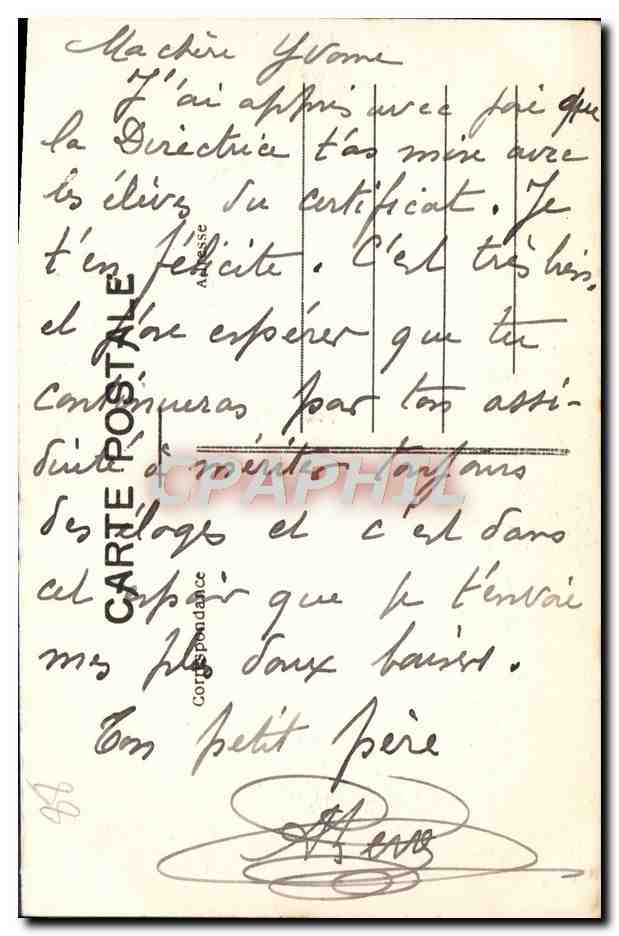 Ma chère Yvonne
J'ai appris avec joie que
la Directrice t'as mise avec
les élèves du certificat. Je
t'en félicite. C'est très bien,
et j'ose espérer que tu
continueras par ton assi-
duité à mériter toujours
des éloges et c'est dans
cet espoir que je t'envoie
mes plus doux baisers.
Ton petit père
88
CARTE POSTALE
Correspondance
Adresse
CPAPHIL